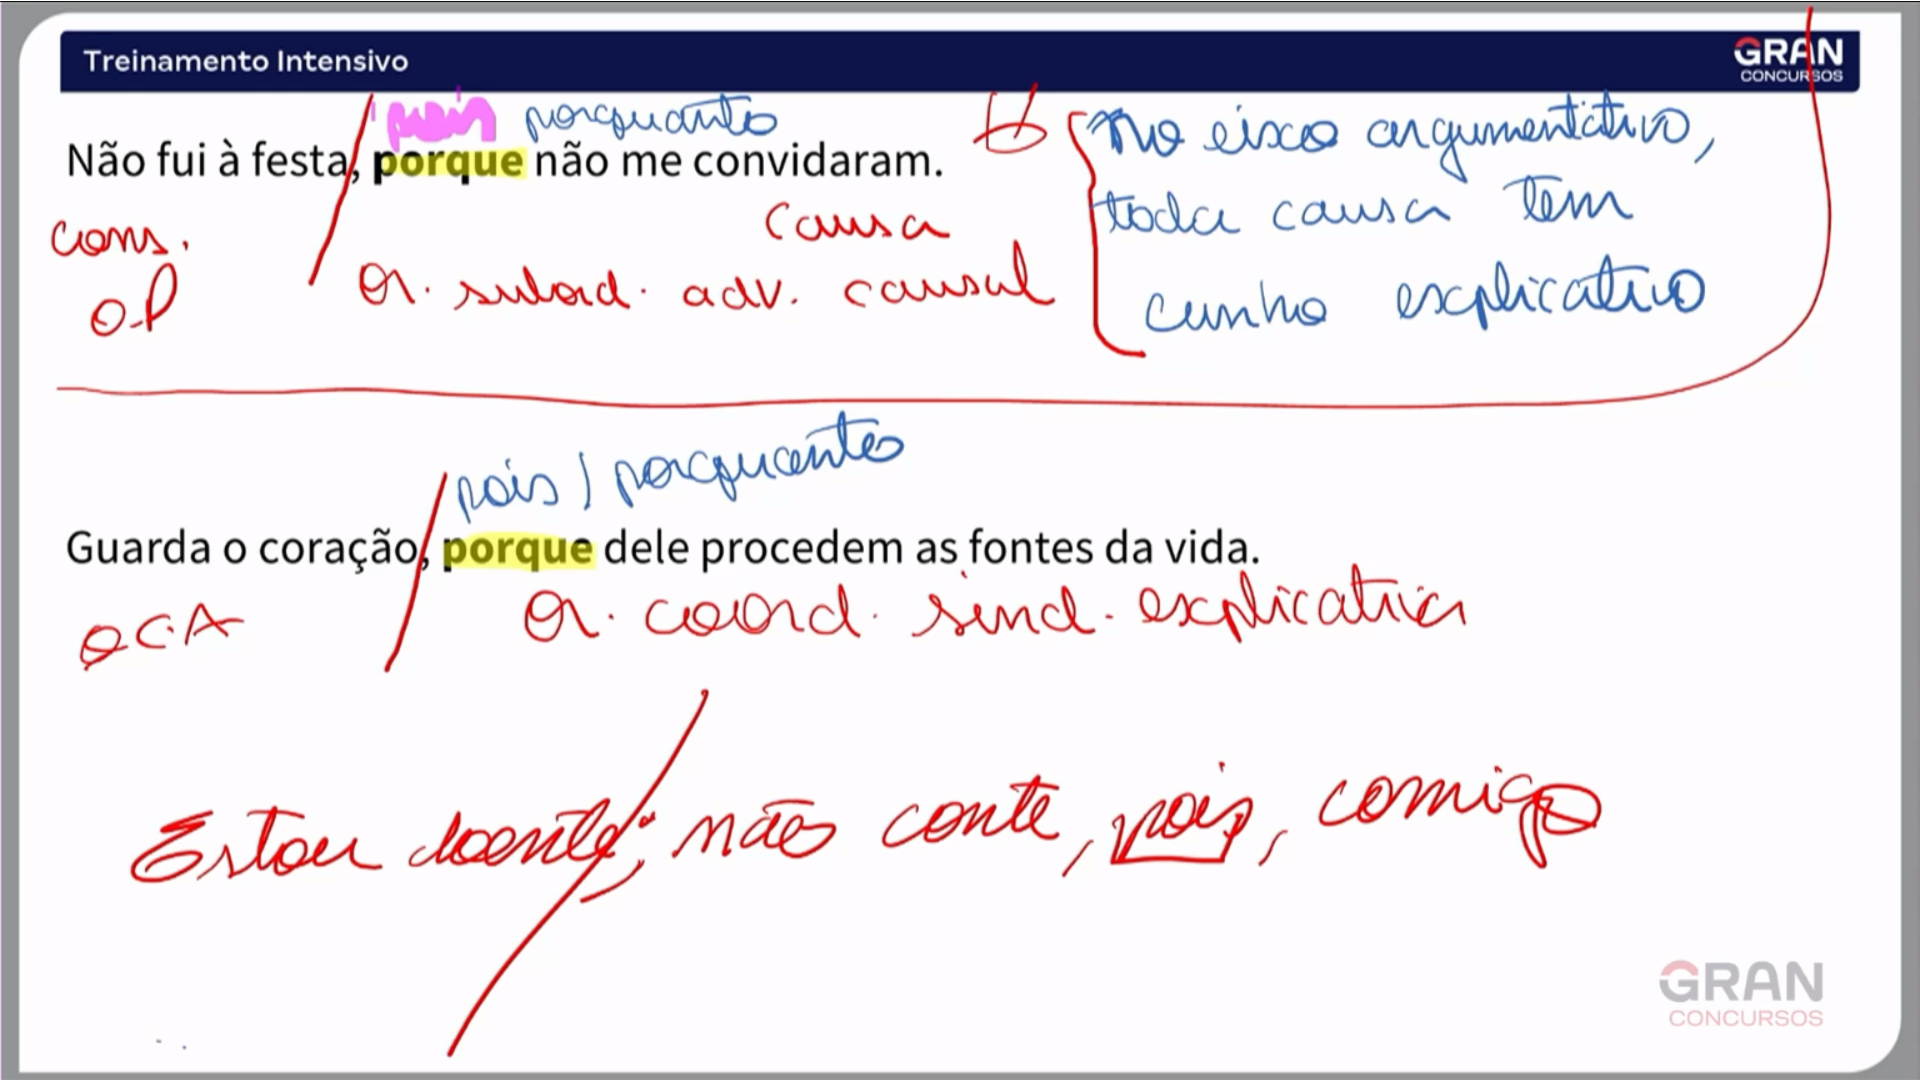 Treinamento Intensivo
GRAN
CONCURSOS
pois porquanto
Não fui à festa, porque não me convidaram.
No eixo argumentativo,
toda causa tem
cunho explicativo
cons.
causa
O.P
or. subord. adv. causal
pois / porquanto
Guarda o coração, porque dele procedem as fontes da vida.
O.C.A
or. coord. sind. explicativa
Estou doente; não conte, pois, comigo
GRAN
CONCURSOS